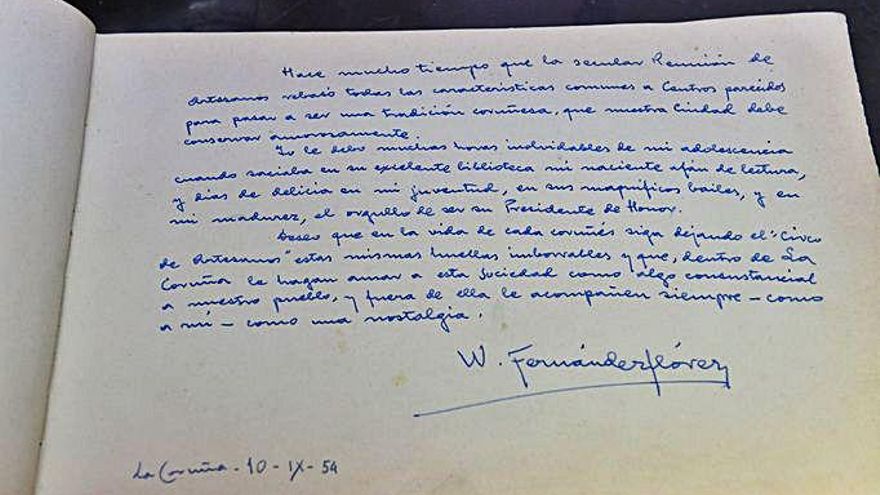 Hace mucho tiempo que la secular Reunión de
Artesanos rebasó todas las características comunes a Centros parecidos
para pasar a ser una tradición coruñesa, que nuestra Ciudad debe
conservar amorosamente.
Yo le debo muchas horas inolvidables de mi adolescencia
cuando saciaba en su excelente biblioteca mi naciente afán de lectura,
y días de delicia en mi juventud, en sus magníficos bailes, y en
mi madurez, el orgullo de ser su Presidente de Honor.
Deseo que en la vida de cada coruñés siga dejando el "Circo
de Artesanos" estas mismas huellas imborrables y que, dentro de La
Coruña le hagan amar a esta sociedad como algo consustancial
a nuestro pueblo, y fuera de ella le acompañen siempre – como
a mí – como una nostalgia.
W. Fernández Flórez
La Coruña - 10 - IX - 54